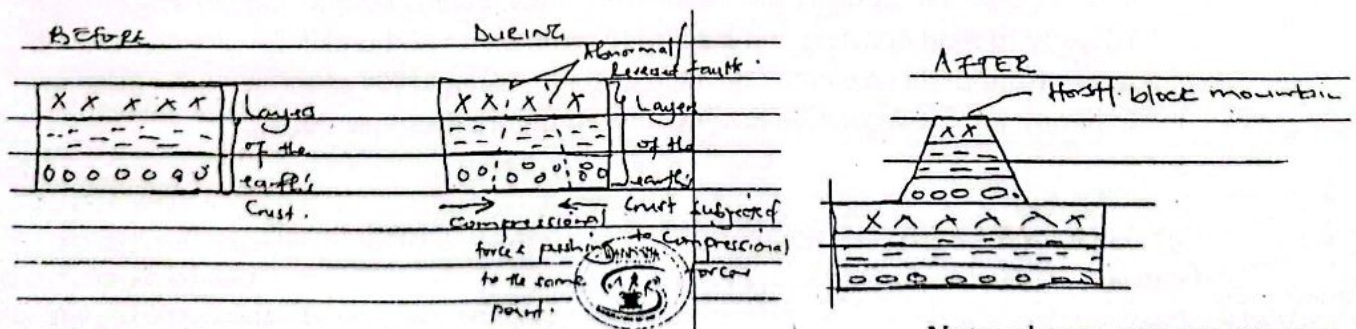 BEFORE
Layers
of the
earth's
Crust.
DURING
Abnormal /
Reversed faults.
Layers
of the
earth's
Crust subjected
to compressional
forces
Compressional
forces pushing
to the same
point.
AFTER
Horst / block mountain